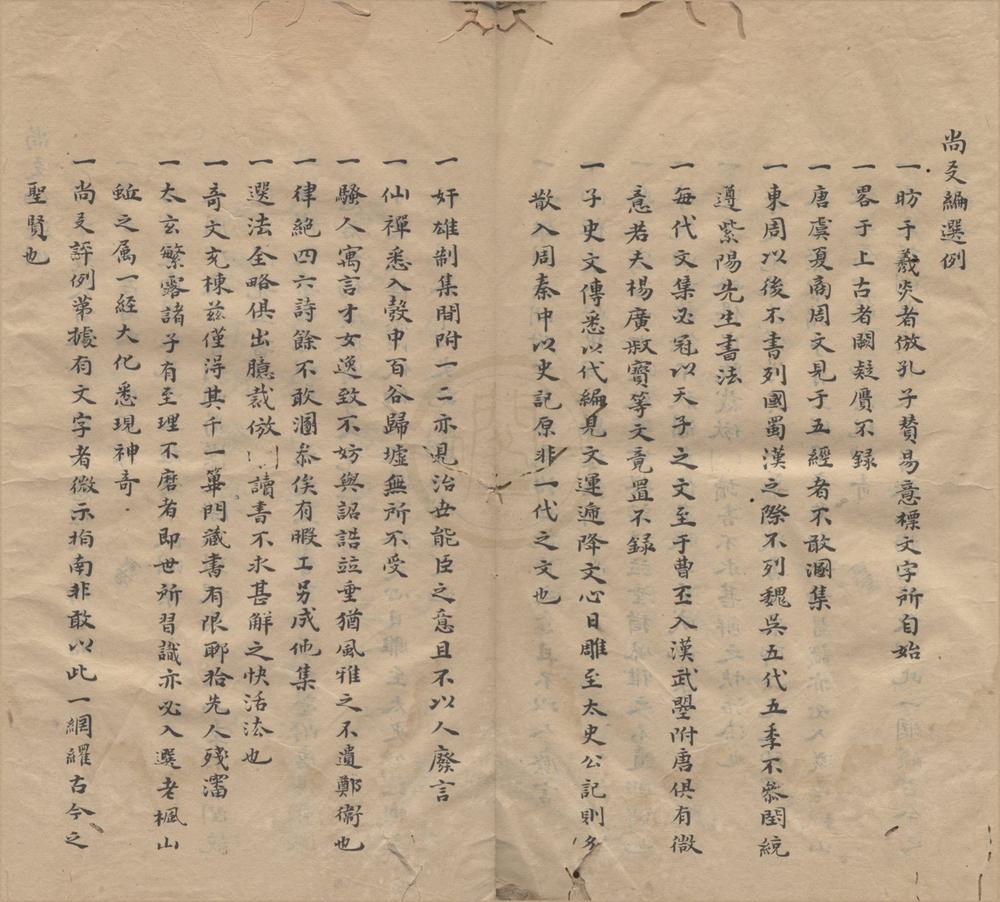 尚友編選例
一昉于羲炎者倣孔子贊易意標文字所自始
一畧于上古者闕疑贗不錄
一唐虞夏商周文見于五經者不敢溷集
一東周以後不書列國蜀漢之際不列魏吳五代五季不叅閏統
遵紫陽先生書法
一每代文集必冠以天子之文至于曹丕入漢武曌附唐俱有微
意若夫楊廣叔寶等文竟置不錄
一子史文傳悉以代編見文運遞降文心日雕至太史公記則多
散入周秦中以史記原非一代之文也
一奸雄制集間附一二亦見治世能臣之意且不以人廢言
一仙禪悉入彀中百谷歸墟無所不受
一騷人寓言才女逸致不妨與詔誥竝垂猶風雅之不遺鄭衞也
一律絕四六詩餘不敢溷叅俟有暇工另成他集
一選法全略俱出臆裁倣讀書不求甚解之快活法也
一奇文充棟茲僅得其千一蓽門藏書有限聊拾先人殘瀋
一太玄繁露諸子有至理不磨者即世所習識亦必入選老楓山
蚯之屬一經大化悉現神奇
一尚友評例第據有文字者微示指南非敢以此一網羅古今之
聖賢也